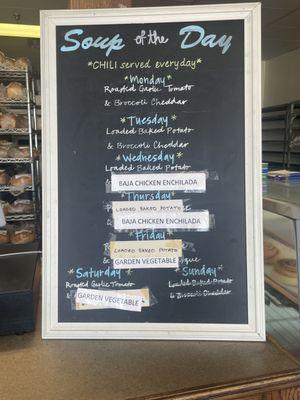 Soup of the Day
*CHILI served everyday*
*Monday*
Roasted Garlic Tomato
& Broccoli Cheddar
*Tuesday*
Loaded Baked Potato
& Broccoli Cheddar
*Wednesday*
Loaded Baked Potato
BAJA CHICKEN ENCHILADA
*Thursday
LOADED BAKED POTATO
BAJA CHICKEN ENCHILADA
*Friday
LOADED BAKED POTATO
GARDEN VEGETABLE
*Saturday*
Roasted Garlic Tomato
&
GARDEN VEGETABLE
*Sunday*
Loaded Baked Potato
& Broccoli Cheddar